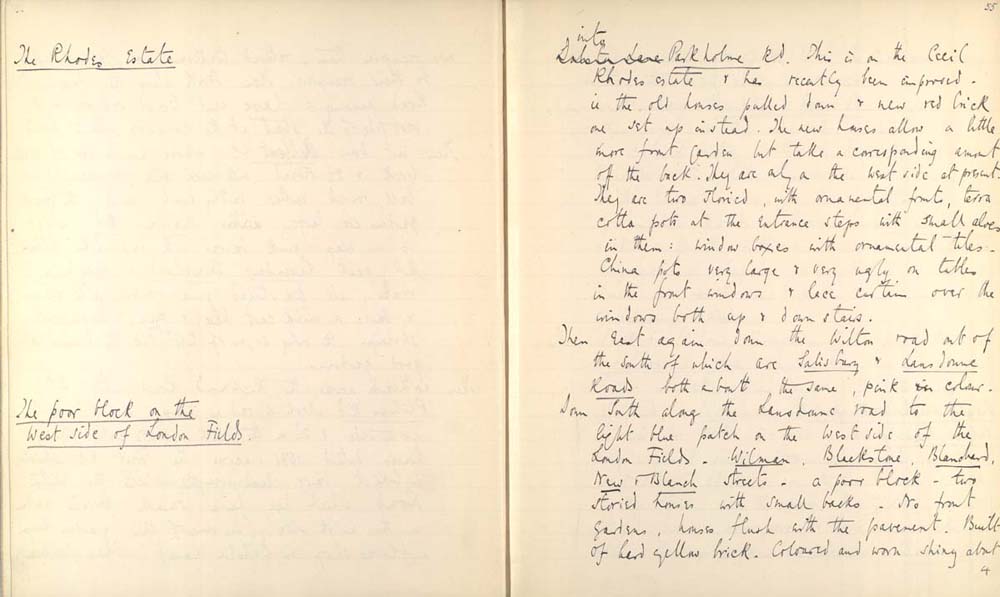 The Rhodes Estate
The poor block on the
West side of London Fields.
55
into
Parkholme Rd. This is on the Cecil
Rhodes estate & has recently been improved -
ie the old houses pulled down & new red brick
one set up instead. The new houses allow a little
more front garden but take a corresponding amount
off the back. They are only on the west side at present.
They are two storied, with ornamental fronts, terra
cotta pots at the entrance steps with small aloes
in them: window boxes with ornamental tiles -
China pots very large & very ugly on tables
in the front windows & lace curtain over the
windows both up & down stairs.
Then East again down the Wilton road out of
the South of which are Salisbury & Lansdowne
Roads both about the same, pink in colour.
Down South along the Lansdowne road to the
light blue patch on the West side of the
London Fields - Wilman, Blackstone, Blanchard,
New & Blanch streets - a poor block - two
storied houses with small backs - No front
gardens, houses flush with the pavement. Built
of hard yellow brick. Coloured and worn shiny about
4